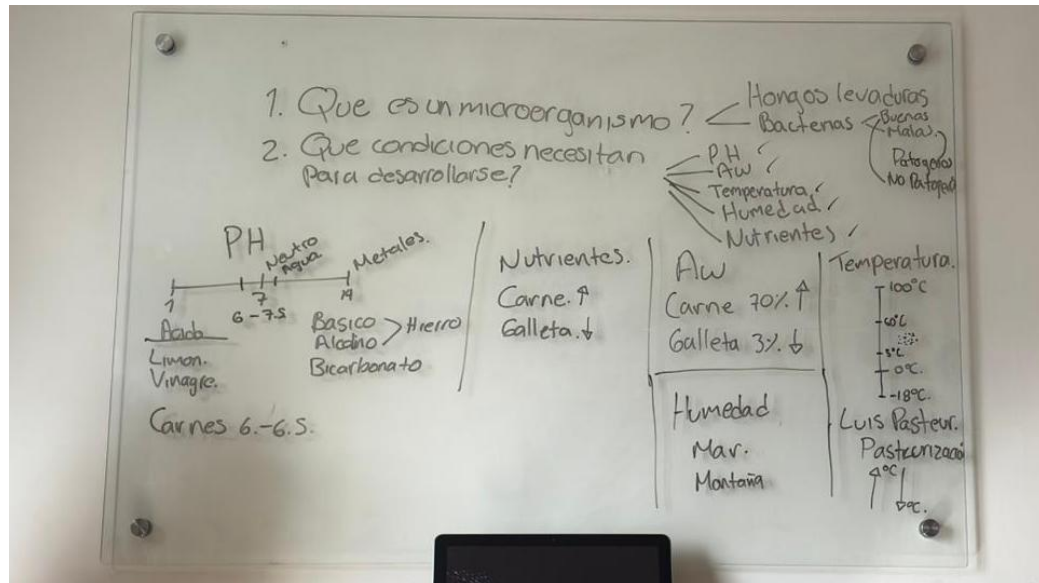 1. Que es un microerganismo?
Hongos levaduras
Bacterias
Buenas
Malas.
Patogeras
No Patogeras
2. Que condiciones necesitan
Para desarrollarse?
PH
Aw
Temperatura
Humedad
Nutrientes
PH
Neutro
Agua
Metales.
1
7
14
6-7.5
Acido
Limon.
Vinagre.
Basico
Alcalino
Hierro
Bicarbonato
Carnes 6.-6.5.
Nutrientes.
Carne. ↑
Galleta. ↓
Aw
Carne 70% ↑
Galleta 3% ↓
Humedad
Mar.
Montaña
Temperatura.
100°C
60°C
5°C
0°C.
-18°C.
Luis Pasteur.
Pasteurizació
↑°C
↓°C.